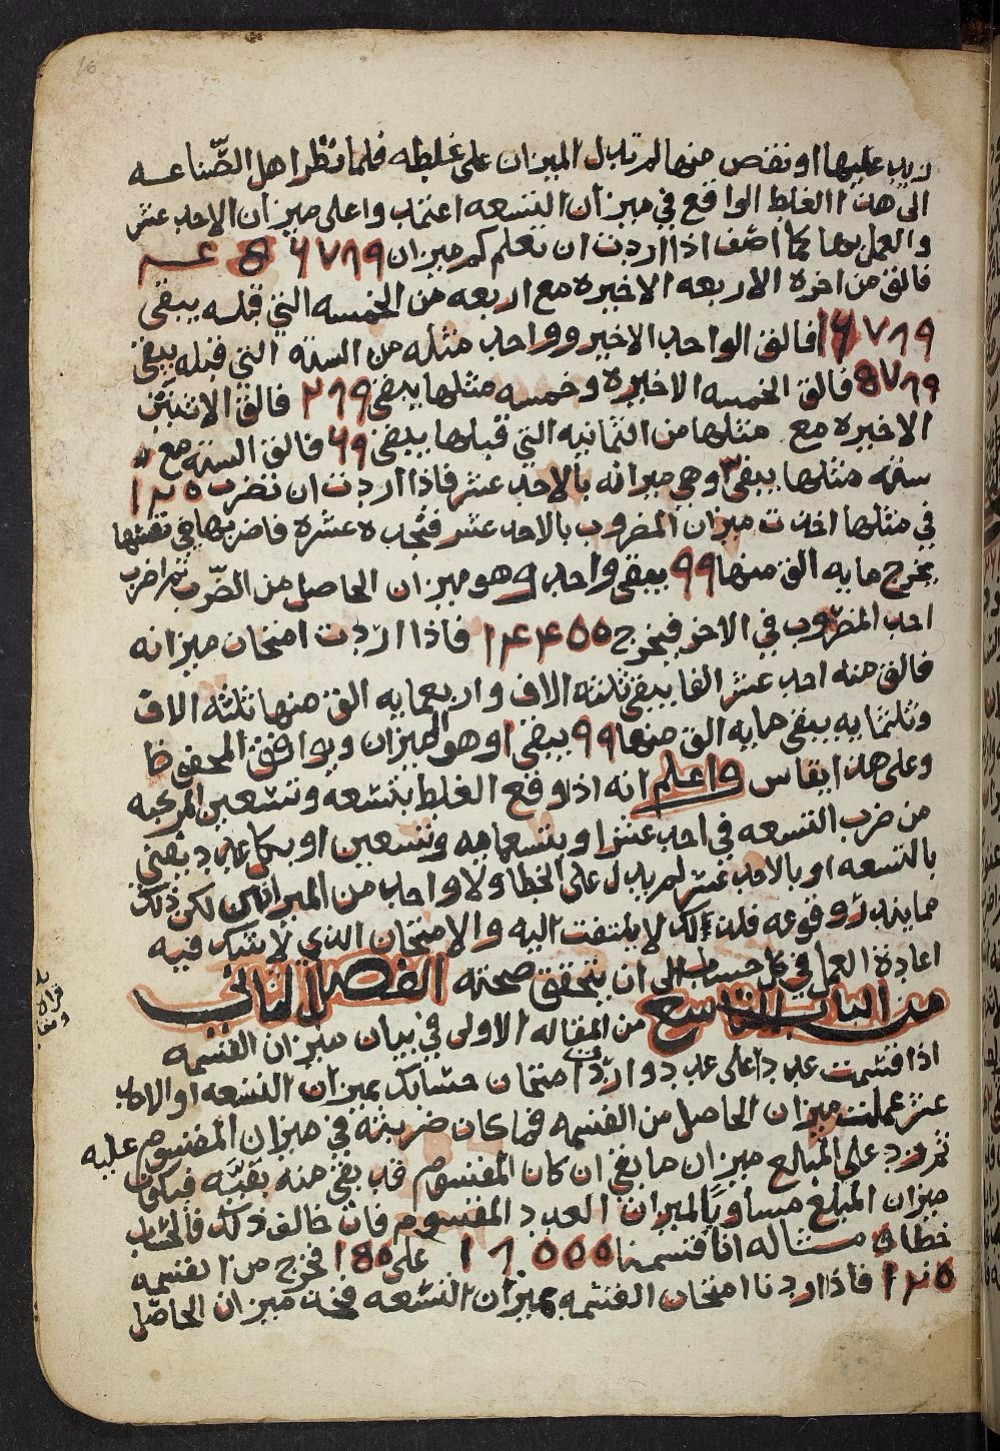 زيد عليها او نقص منها لم تدل الميزان على غلطه فلما نظر اهل الصّناعه
الى هذا الغلط الواقع في ميزان التسعه اعتمدوا على ميزان الاحد عشر
والعمل بها كما اصف اذا اردت ان تعلم كم ميزان
فالق من اخره الاربعه الاخيره مع اربعه من الخمسه التي قبله يبقى
فالق الواحد الاخير وواحد مثله من السته التي قبله يبقى
فالق الخمسه الاخيره وخمسه مثلها يبقى فالق الاثنين
الاخيره مع مثلها من الثمانيه التي قبلها يبقى ٦٩ فالق السته مع
سته مثلها يبقى ٣ وهي ميزانه بالاحد عشر فاذا اردت ان تضرب
في مثلها اخذت ميزان المضروب بالاحد عشر فتجده عشره فاضربها في نفسها
يخرج مايه الق منها ٩٩ يبقى واحد وهو ميزان الحاصل من الضّرب ثم اضرب
احد المضروب في الاخر فيخرج فاذا اردت امتحان ميزانه
فالق منه احد عشر الفا يبقى ثلثه الاف واربعمايه الق منها ثلثه الاف
وثلثمايه يبقى مايه الق منها ٩٩ يبقى ١ وهو الميزان ويوافق المحفوظ
وعلى هذا يقاس واعلم انه اذا وقع الغلط بتسعه وتسعين المركبه
من ضرب التسعه في احد عشر او بتسعمايه وتسعين او بكل عدد يفنى
بالتسعه او بالاحد عشر لم يدل على الخطا ولا واحد من الميزانين لكن ذلك
مما يندر وقوعه فلذلك لا يلتفت اليه والامتحان الذي لا شك فيه
اعادة العمل في كل حساب الى ان يتحقق صحته الفصل الثاني
من الباب التاسع من المقاله الاولى في بيان ميزان القسمه
اذا قسمت عددا على عدد واردت امتحان حسابك بميزان التسعه او الاحد
عشر عملت ميزان الحاصل من القسمه فما كان ضربته في ميزان المقسوم عليه
ثم زد على المبلغ ميزان ما بقي ان كان المقسوم قد بقي منه بقيّه فيكون
ميزان المبلغ مساويا لميزان العدد المقسوم فان خالف ذلك فالحساب
خطا مثاله انا قسمنا على فخرج من القسمه
فاذا اردنا امتحان القسمه بميزان التسعه فخذ ميزان الحاصل